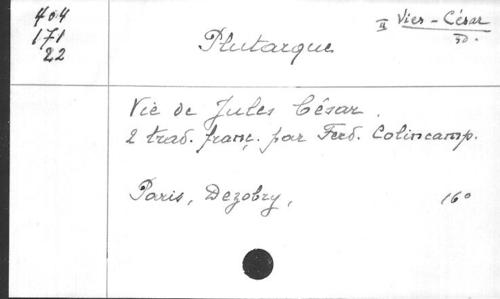 404
171
22
II Vies - César
Plutarque
Vie de Jules César.
2 trad. franç. par Ferd. Colincamp.
Paris, Dezobry,
16°